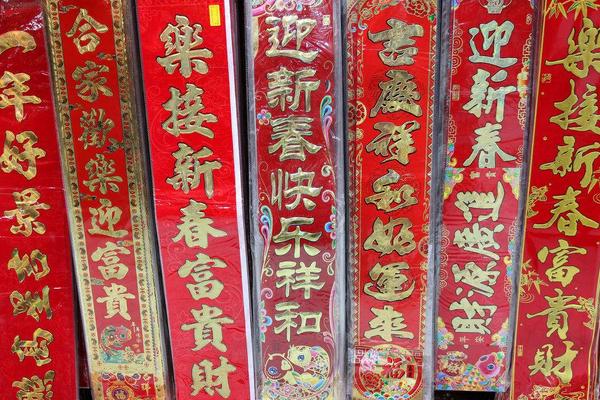 一年好景
合家歡樂迎富貴
樂接新春富貴財
迎新春快乐祥和
吉慶祥和好運來
迎新春
財源廣進
樂接新春富貴財